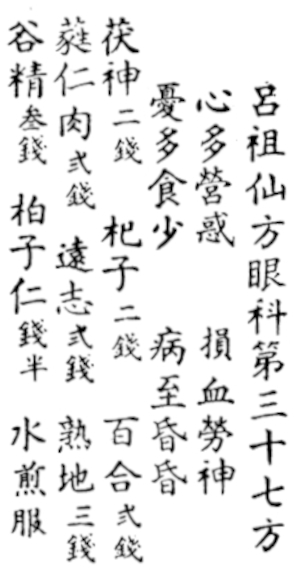 呂祖仙方眼科第三十七方
心多營惑 損血勞神
憂多食少 病至昏昏
茯神二錢 杞子二錢 百合弍錢
蕤仁肉弍錢 遠志弍錢 熟地三錢
谷精叁錢 柏子仁錢半 水煎服